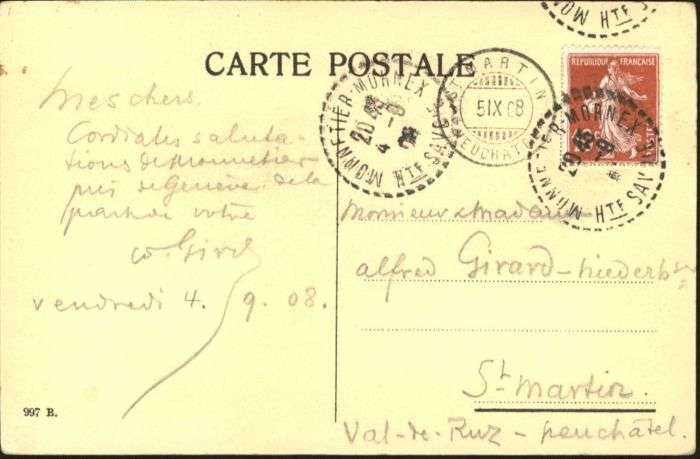 CARTE POSTALE
Mes chers,
Cordiales saluta-
tions de Monnetier
près de Genève de la
part de votre
vendredi 4. 9. 08.
997 B.
MONNETIER-MORNEX
20 4 08
HTE SAVOIE
ST MARTIN
5 IX 08
NEUCHATEL
REPUBLIQUE FRANÇAISE
MONNETIER-MORNEX
20
HTE SAVOIE
MO HTE SAV
Monsieur & Madame
Alfred Girard-Niederh
St. Martin.
Val-de-Ruz - Neuchâtel.